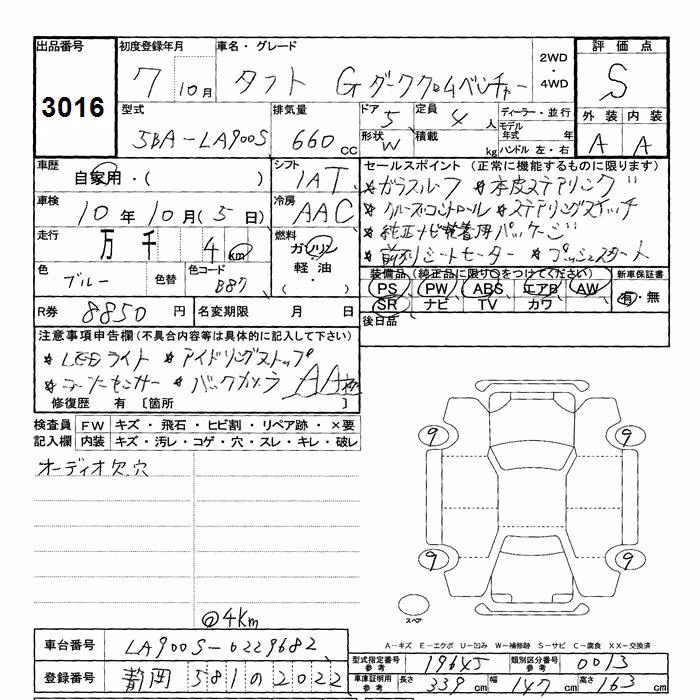 出品番号 初度登録年月 車名・グレード 2WD・4WD 評価点
3016 7 10月 タフト Gダーククロムベンチャー S
型式 排気量 ドア 5 定員 4人 ディーラー・並行 外装 内装
5BA-LA900S 660cc 形状 W 積載 kg モデル年式 年 ハンドル 左・右 A A
車歴 シフト セールスポイント (正常に機能するものに限ります)
自家用・( ) IAT *ガラスルーフ *本皮ステアリング
車検 冷房 *クルーズコントロール *ステアリングスイッチ
10年10月(5日) AAC *純正ナビ装着用パッケージ
走行 万 千 4km 燃料 ガソリン・軽油・ *前列シートヒーター *プッシュスタート
色 ブルー 色替 色コード B87 装備品 (純正品に限り○をつけてください) 新車保証書
PS PW ABS エアB AW 有・無
SR ナビ TV カワ
R券 8850円 名変期限 月 日 後日品
注意事項申告欄 (不具合内容等は具体的に記入して下さい)
*LEDライト *アイドリングストップ
*コーナーセンサー *バックカメラ AA
修復歴 有 [箇所 ]
検査員 FW キズ・飛石・ヒビ割・リペア跡・×要
記入欄 内装 キズ・汚レ・コゲ・穴・スレ・キレ・破レ
オーディオ欠.穴
9 9
9 9
@4Km
スペア
A-キズ E-エクボ U-凹み W-補修跡 S-サビ C-腐食 XX-交換済
車台番号 LA900S-0229682 型式指定番号 参考 19645 類別区分番号 参考 0013
登録番号 静岡 581 の 2022 車庫証明用 参考 長さ 339cm 幅 147cm 高さ 163cm